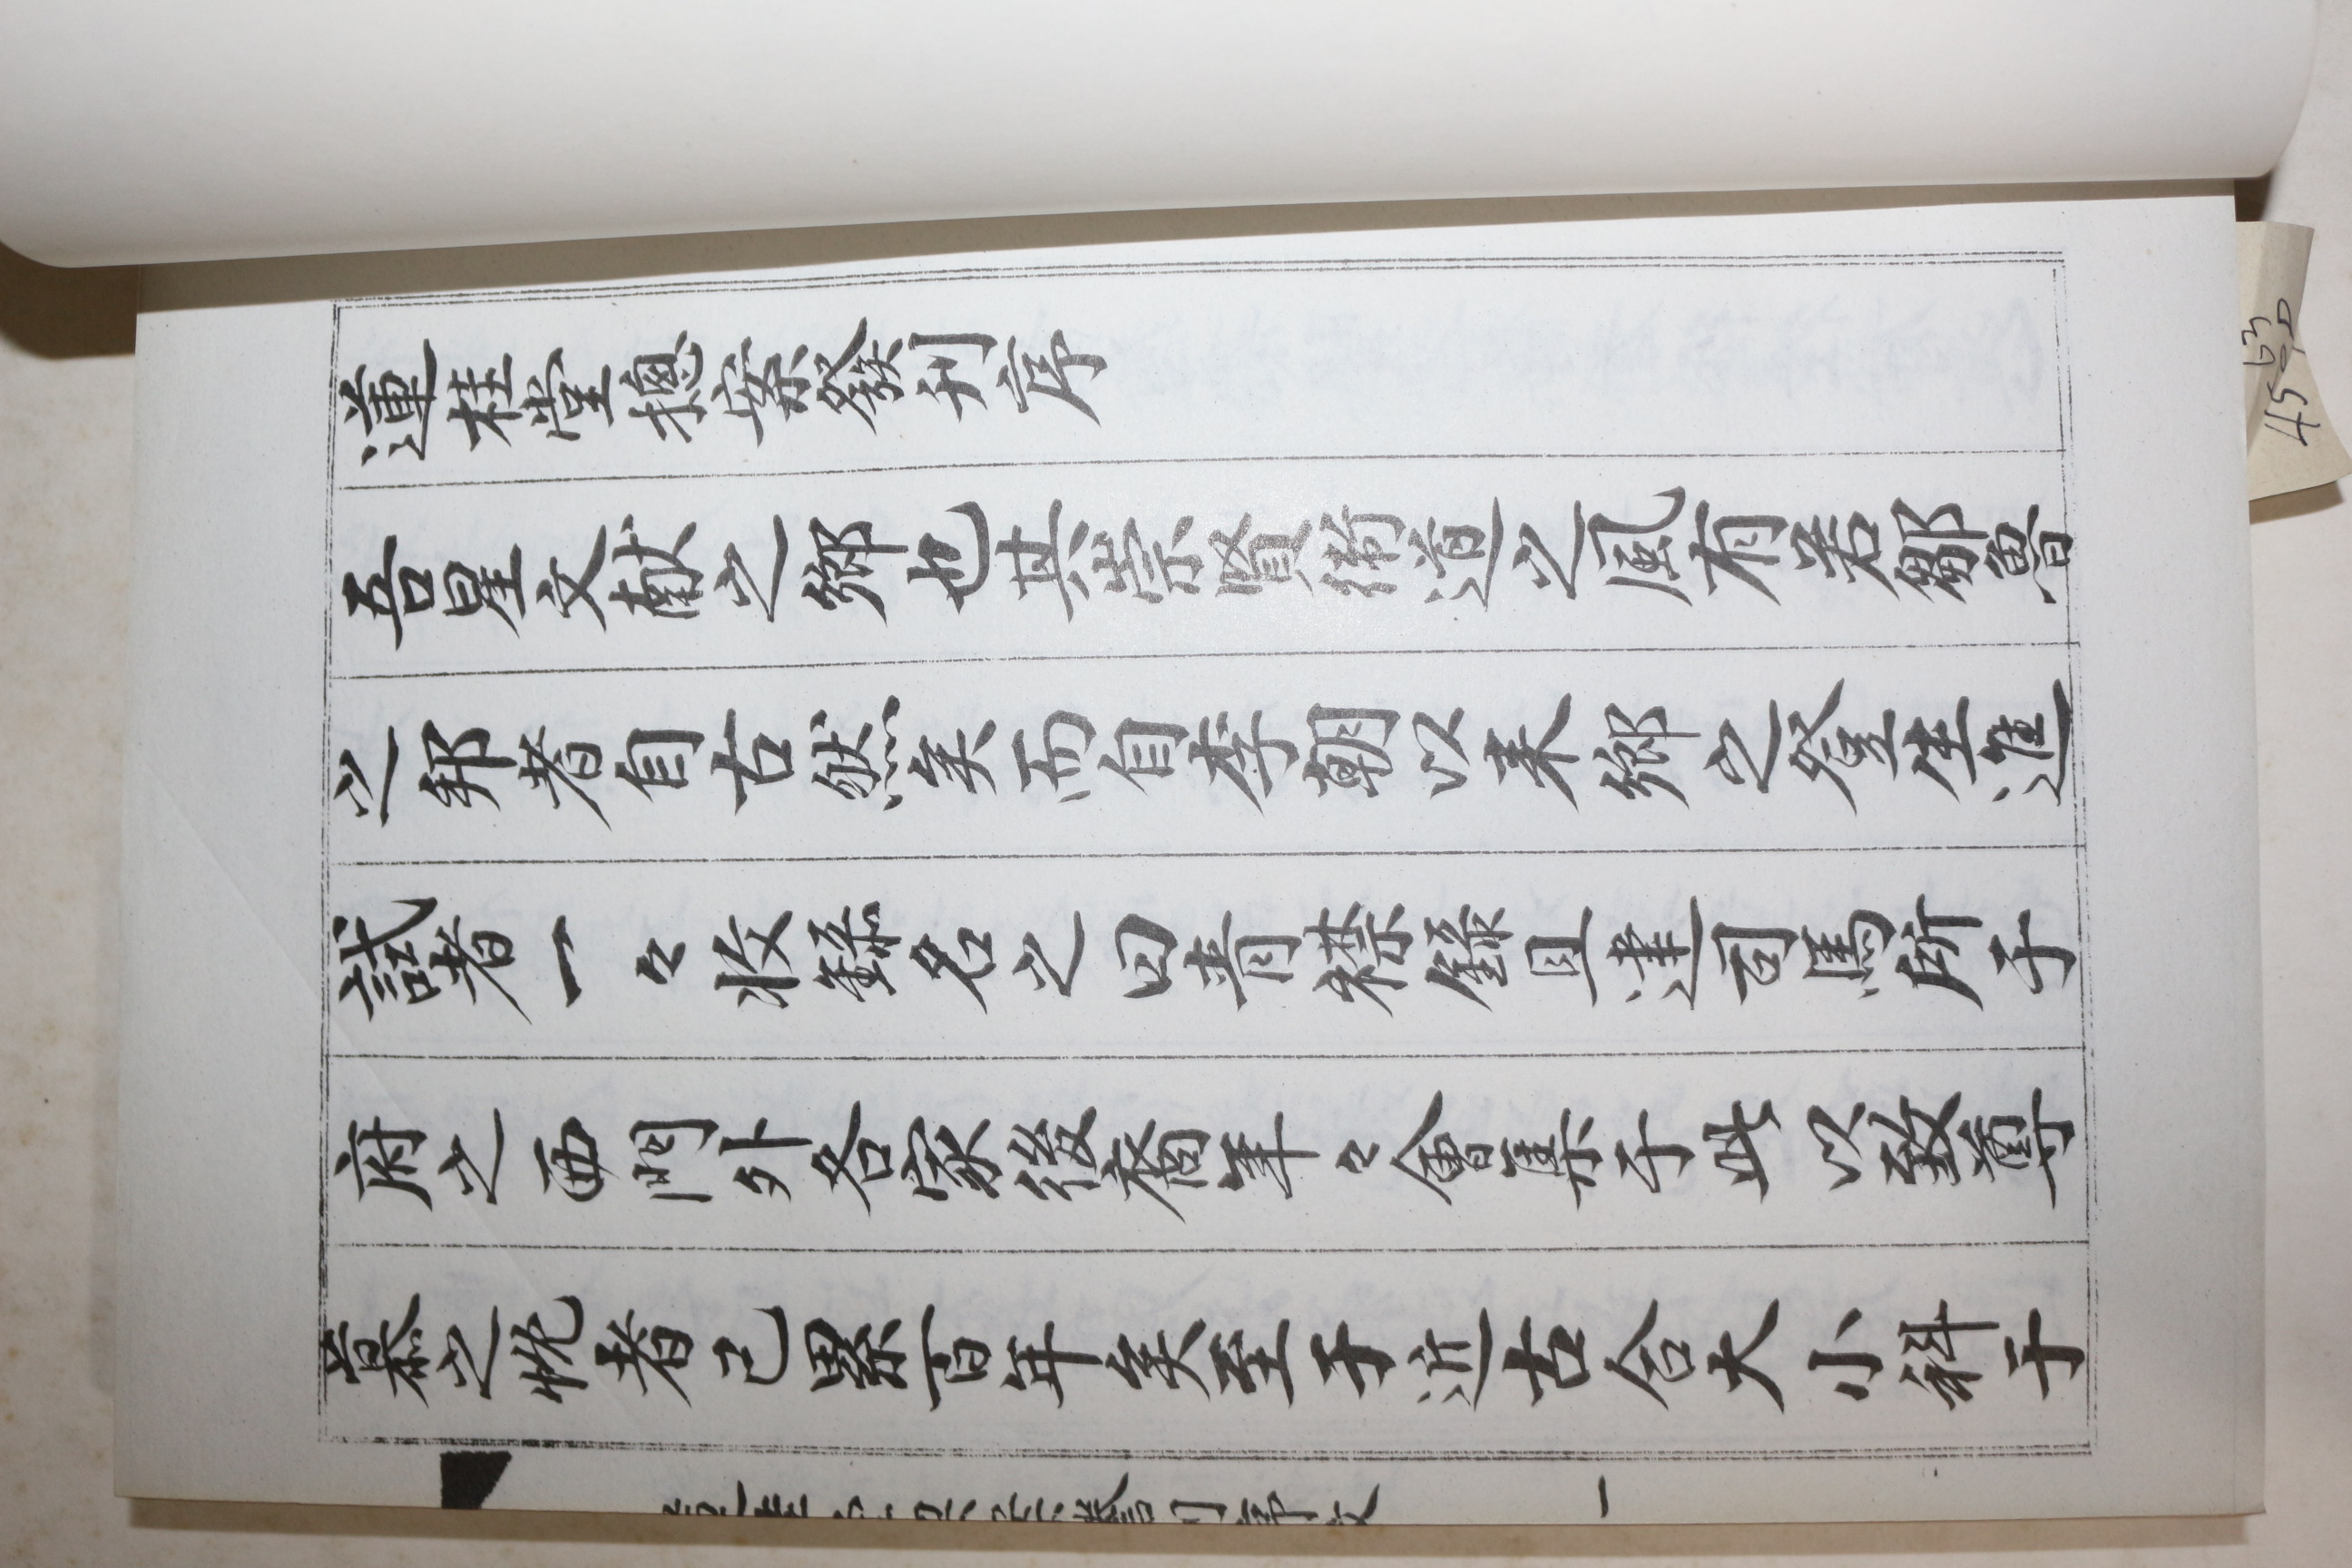 蓮桂堂摠案發刊序
吾星文献之鄉也其崇賢衛道之風有若鄒魯
之邦者自古然矣而自李朝以来鄉之登生進
試者一々收錄名之曰青襟錄且建司馬所于
府之西門外各家後裔年々會集于此以致尊
慕之忱者已累百年矣至于近古合大小科于
一
4563